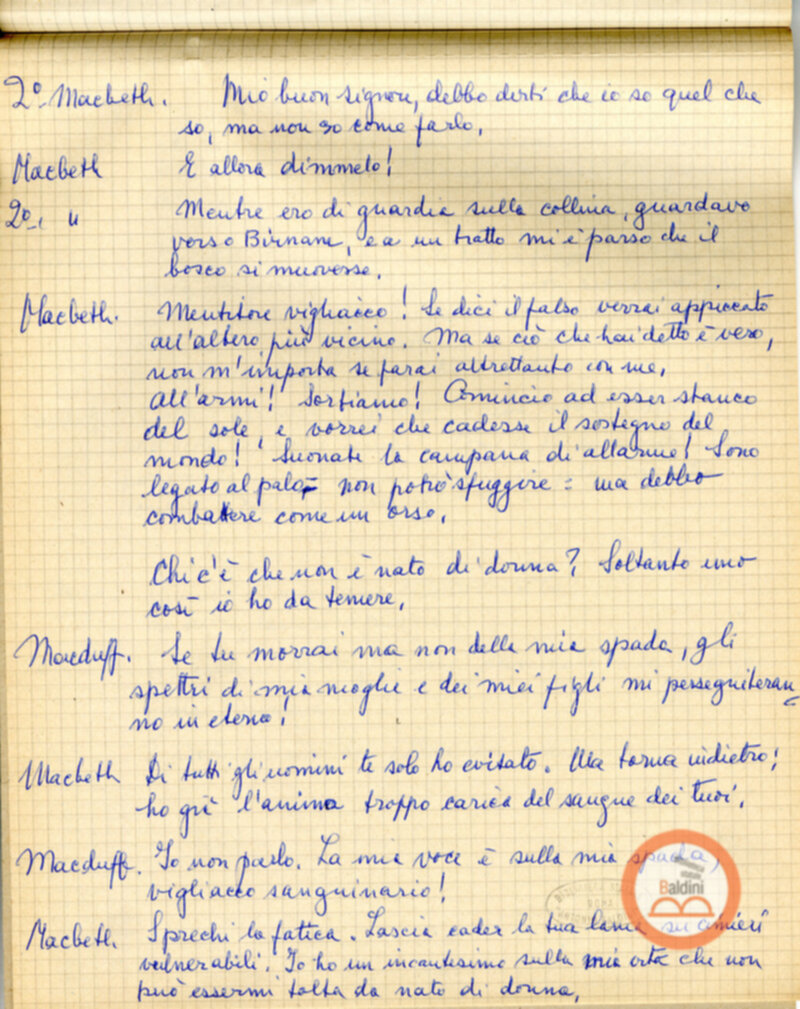 2º Macbeth. Mio buon signore, debbo dirti che io so quel che
so, ma non so come farlo.
Macbeth E allora dimmelo!
2º. " Mentre ero di guardia sulla collina, guardavo
verso Birnane, e a un tratto mi è parso che il
bosco si muovesse.
Macbeth. Mentitore vigliacco! Se dici il falso verrai appiccato
all'albero più vicino. Ma se ciò che hai detto è vero,
non m'importa se farai altrettanto con me.
All'armi! Sortiamo! Comincio ad esser stanco
del sole, e vorrei che cadesse il sostegno del
mondo! Suonate la campana di allarme! Sono
legato al palo = non potrò sfuggire = ma debbo
combattere come un orso.
Chi c'è che non è nato di donna? Soltanto uno
così io ho da temere.
Macduff. Se tu morrai ma non della mia spada, gli
spettri di mia moglie e dei miei figli mi perseguiteran
no in eterno!
Macbeth Di tutti gli uomini te solo ho evitato. Ma torna indietro!
ho già l'anima troppo carica del sangue dei tuoi.
Macduff. Io non parlo. La mia voce è sulla mia spada,
vigliacco sanguinario!
Macbeth Sprechi la fatica. Lascia cader la tua lama su cimieri
vulnerabili. Io ho un incantesimo sulla mia vita che non
può essermi tolta da nato di donna.
Baldini